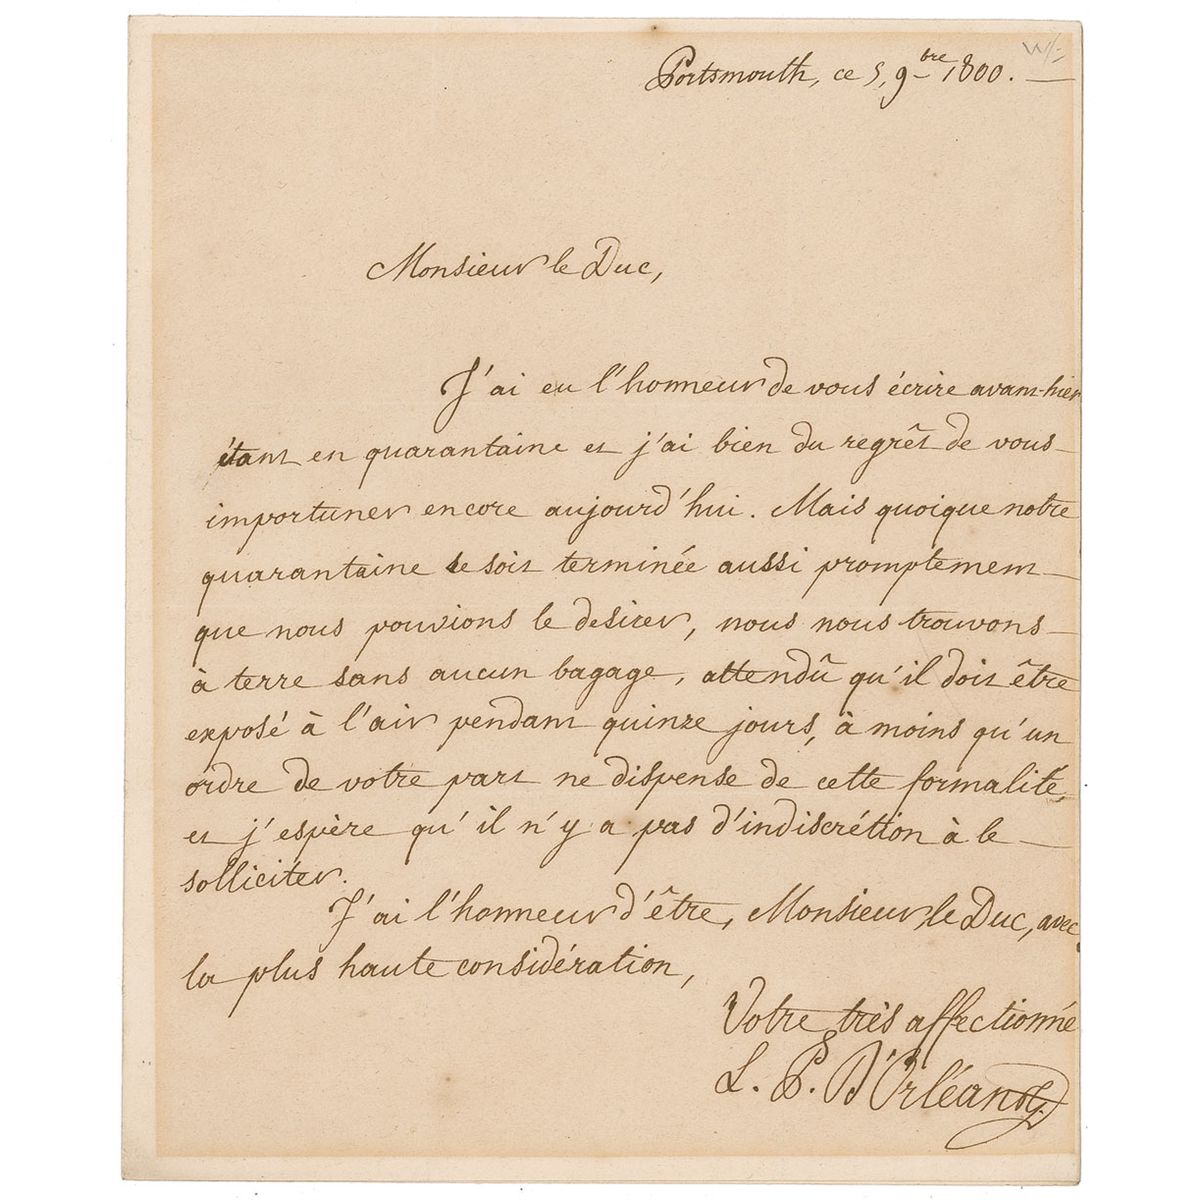 Portsmouth, ce 5, 9.bre 1800.
Monsieur le Duc,
J'ai eu l'honneur de vous écrire avant-hier
étant en quarantaine et j'ai bien du regrêt de vous
importuner encore aujourd'hui. Mais quoique notre
quarantaine se soit terminée aussi promptement
que nous pouvions le desirer, nous nous trouvons
à terre sans aucun bagage, attendû qu'il doit être
exposé à l'air pendant quinze jours, à moins qu'un
ordre de votre part ne dispense de cette formalité,
et j'espère qu'il n'y a pas d'indiscrétion à le
solliciter.
J'ai l'honneur d'être, Monsieur le Duc, avec
la plus haute considération,
Votre très affectionné
L. P. D'Orléans